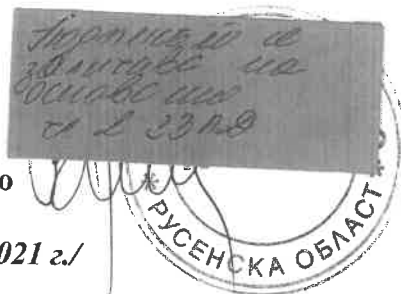 Подписът се
заличава на
основание
чл 2 ЗЗЛД
о
021 г./
* РУСЕНСКА ОБЛАСТ *